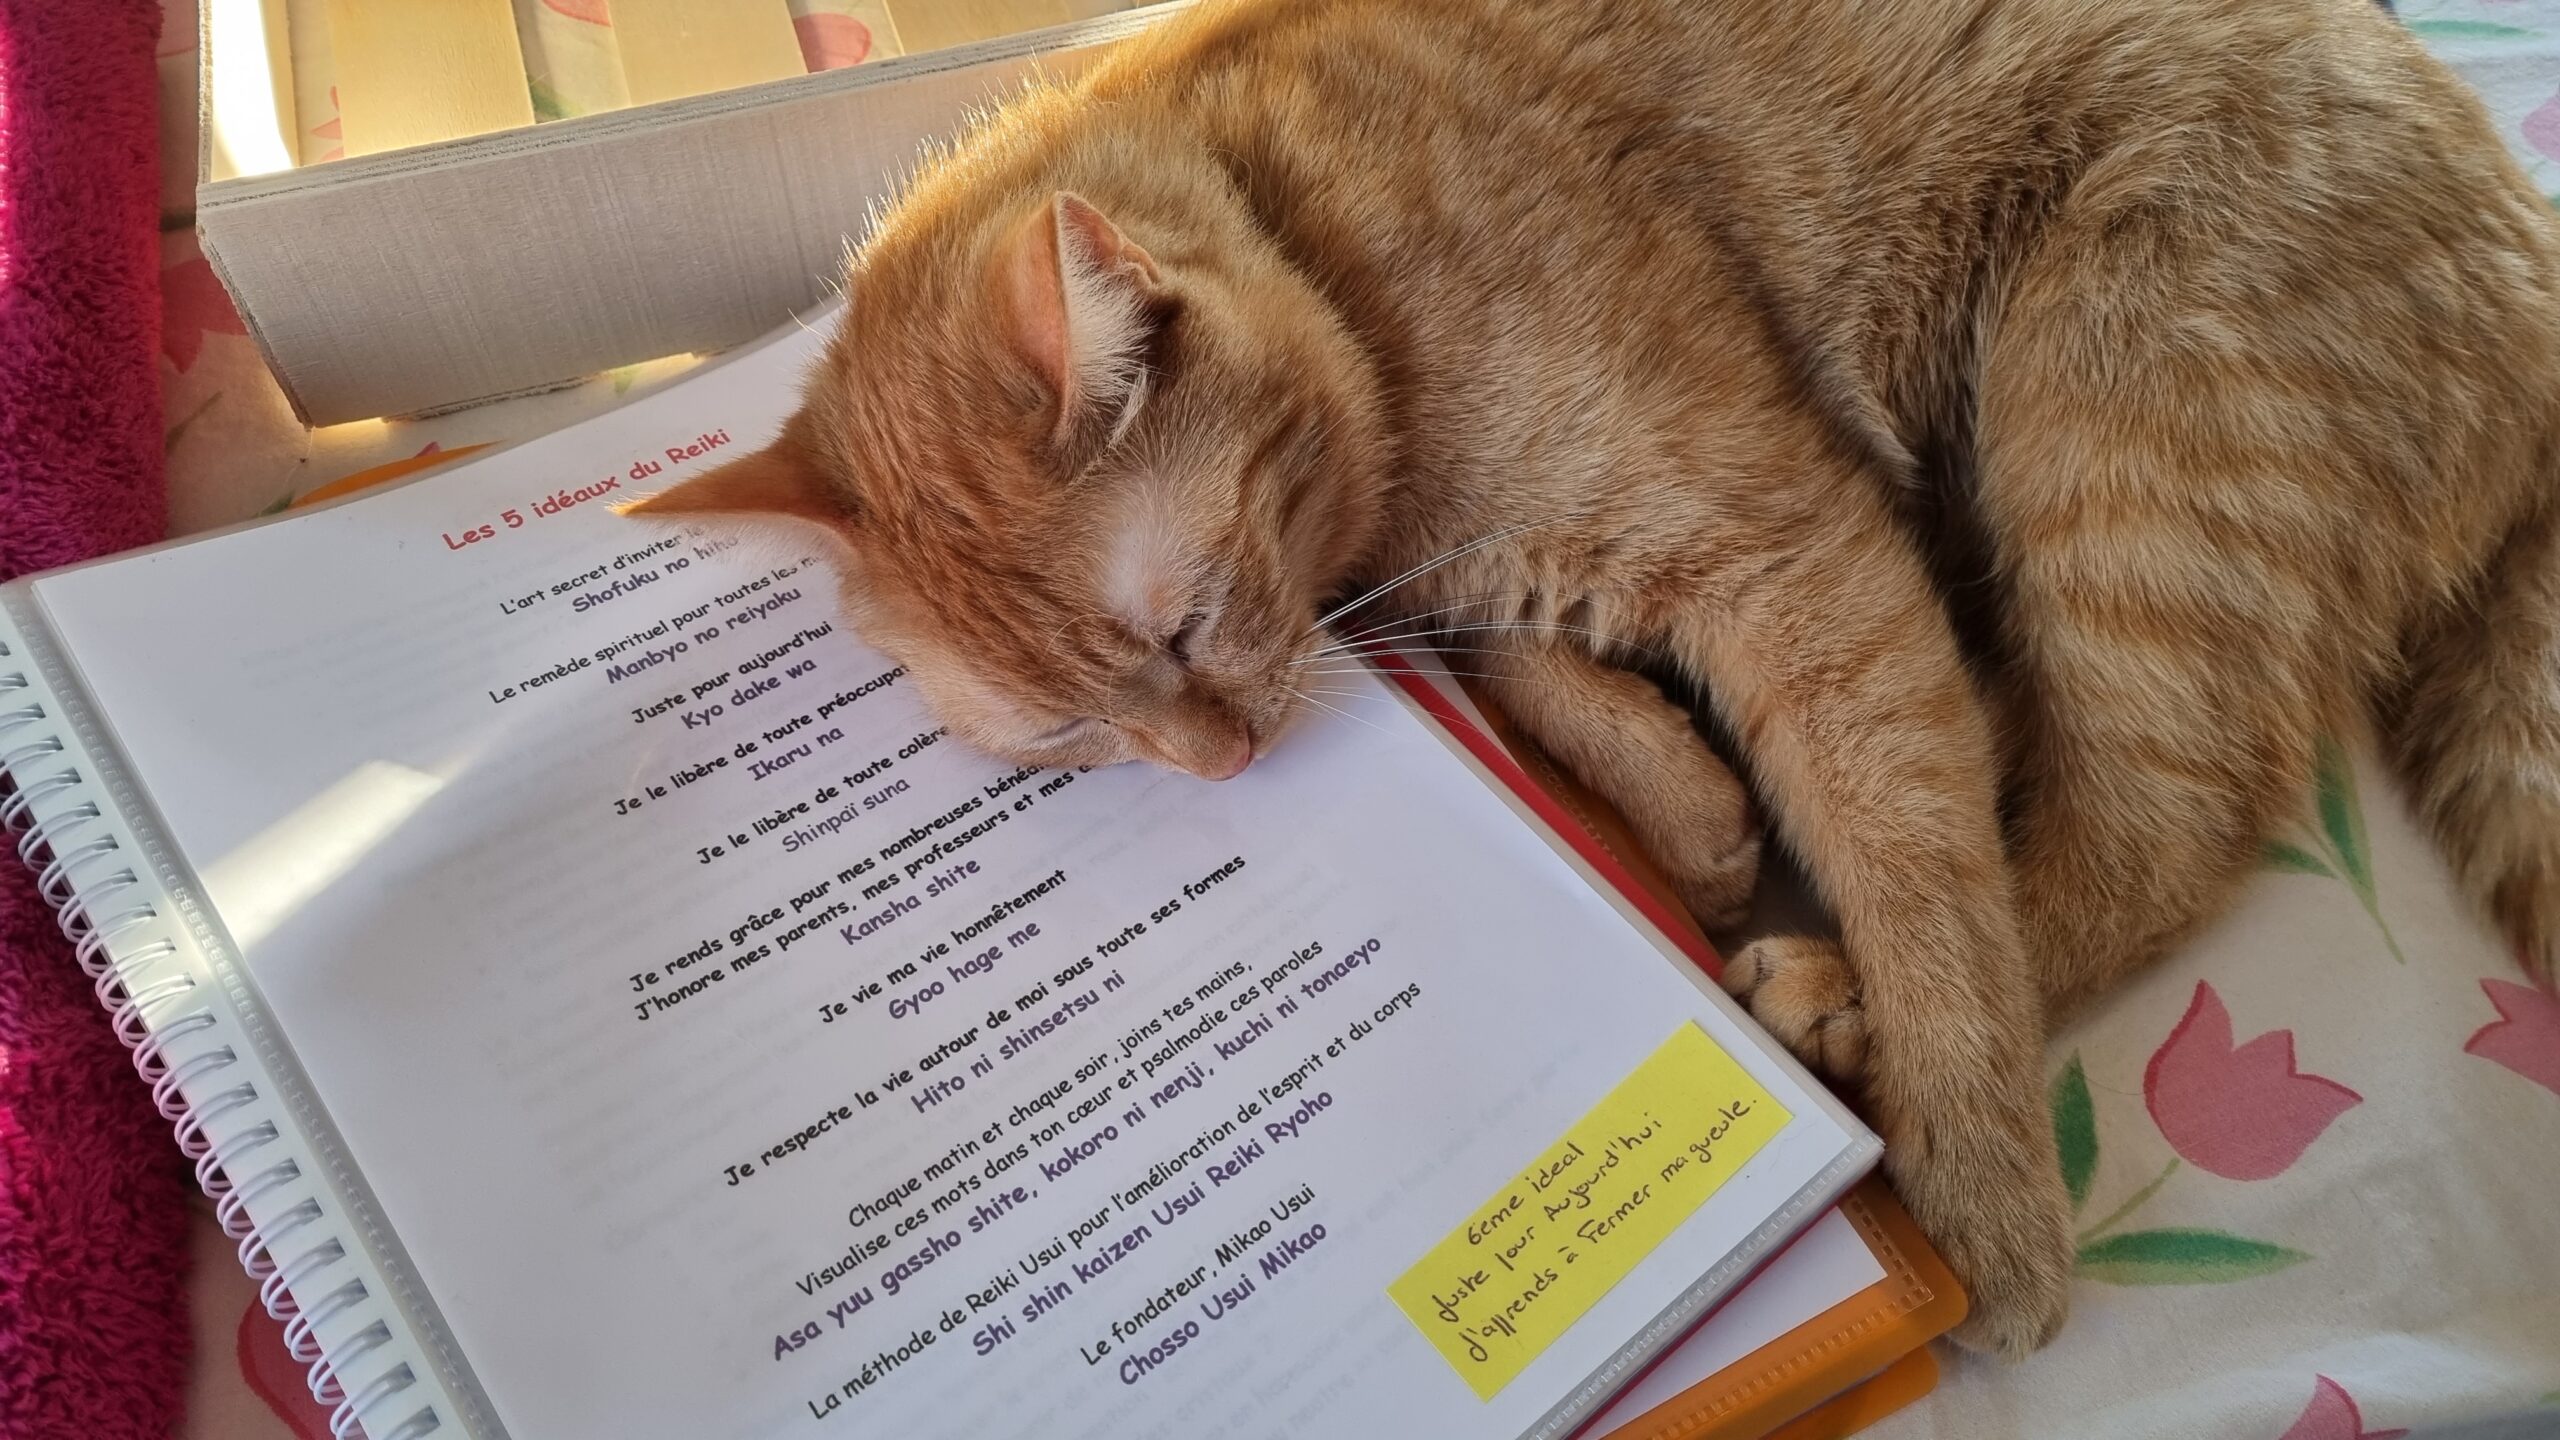 Les 5 idéaux du Reiki
L'art secret d'inviter le
Shofuku no hiho
Le remède spirituel pour toutes les
Manbyo no reiyaku
Juste pour aujourd'hui
Kyo dake wa
Je le libère de toute
Ikaru na
Je le libère de toute colère
Shinpaï suna
Je rends grâce pour mes nombreuses
J'honore mes parents, mes professeurs et mes
Kansha shite
Je vie ma vie honnêtement
Gyoo hage me
Je respecte la vie autour de moi sous toute ses formes
Hito ni shinsetsu ni
Chaque matin et chaque soir, joins tes mains,
Visualise ces mots dans ton cœur et psalmodie ces paroles
Asa yuu gassho shite, kokoro ni nenji, kuchi ni tonaeyo
La méthode de Reiki Usui pour l'amélioration de l'esprit et du corps
Shi shin kaizen Usui Reiki Ryoho
Le fondateur, Mikao Usui
Chosso Usui Mikao
6eme ideal
Juste pour Aujourd'hui
J'apprends à Fermer ma gueule.